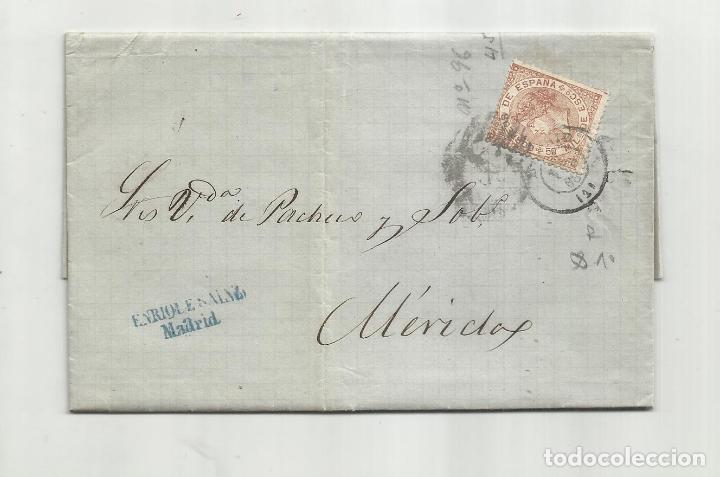 Sres V.da de Pacheco y Sob.s
Mérida
ENRIQUE SAINZ
Madrid
DE ESPAÑA
50
Nº 96
45
todocoleccion.net